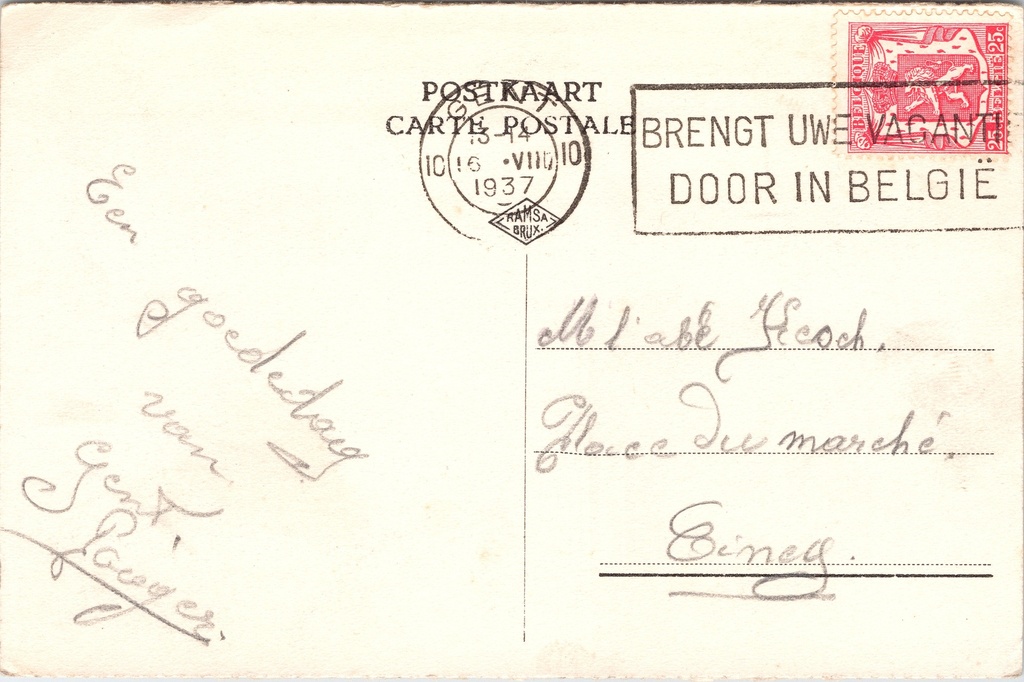 POSTKAART
CARTE POSTALE
GENT
13-14
10 16 ·VIII 10
1937
RAMSA
BRUX.
BRENGT UWE VACANTIE
DOOR IN BELGIË
BELGIQUE
BELGIË
25c
25c
Een
goededag
van
Gent
M l'abbé
Place du marché.
Ciney.